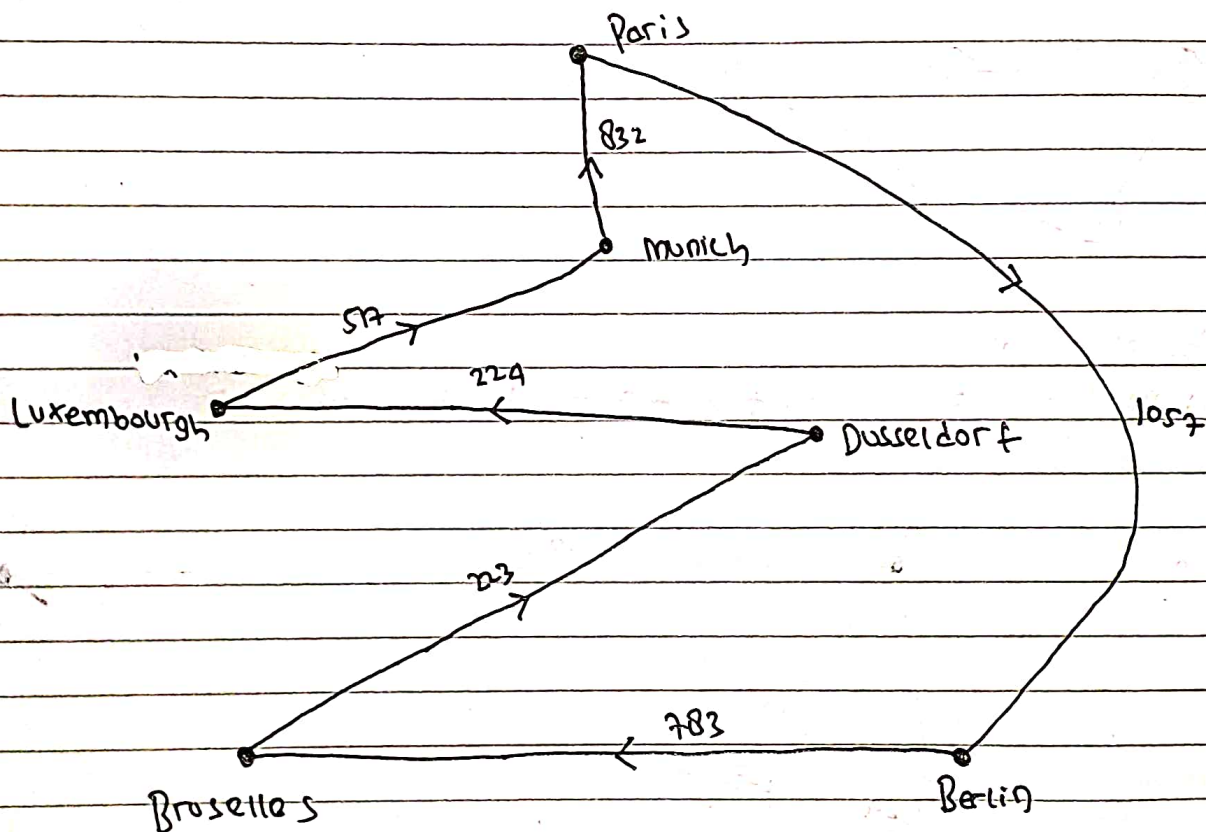 Paris
832
munich
517
224
Luxembourgh
1057
Dusseldorf
223
783
Bruselles
Berlin